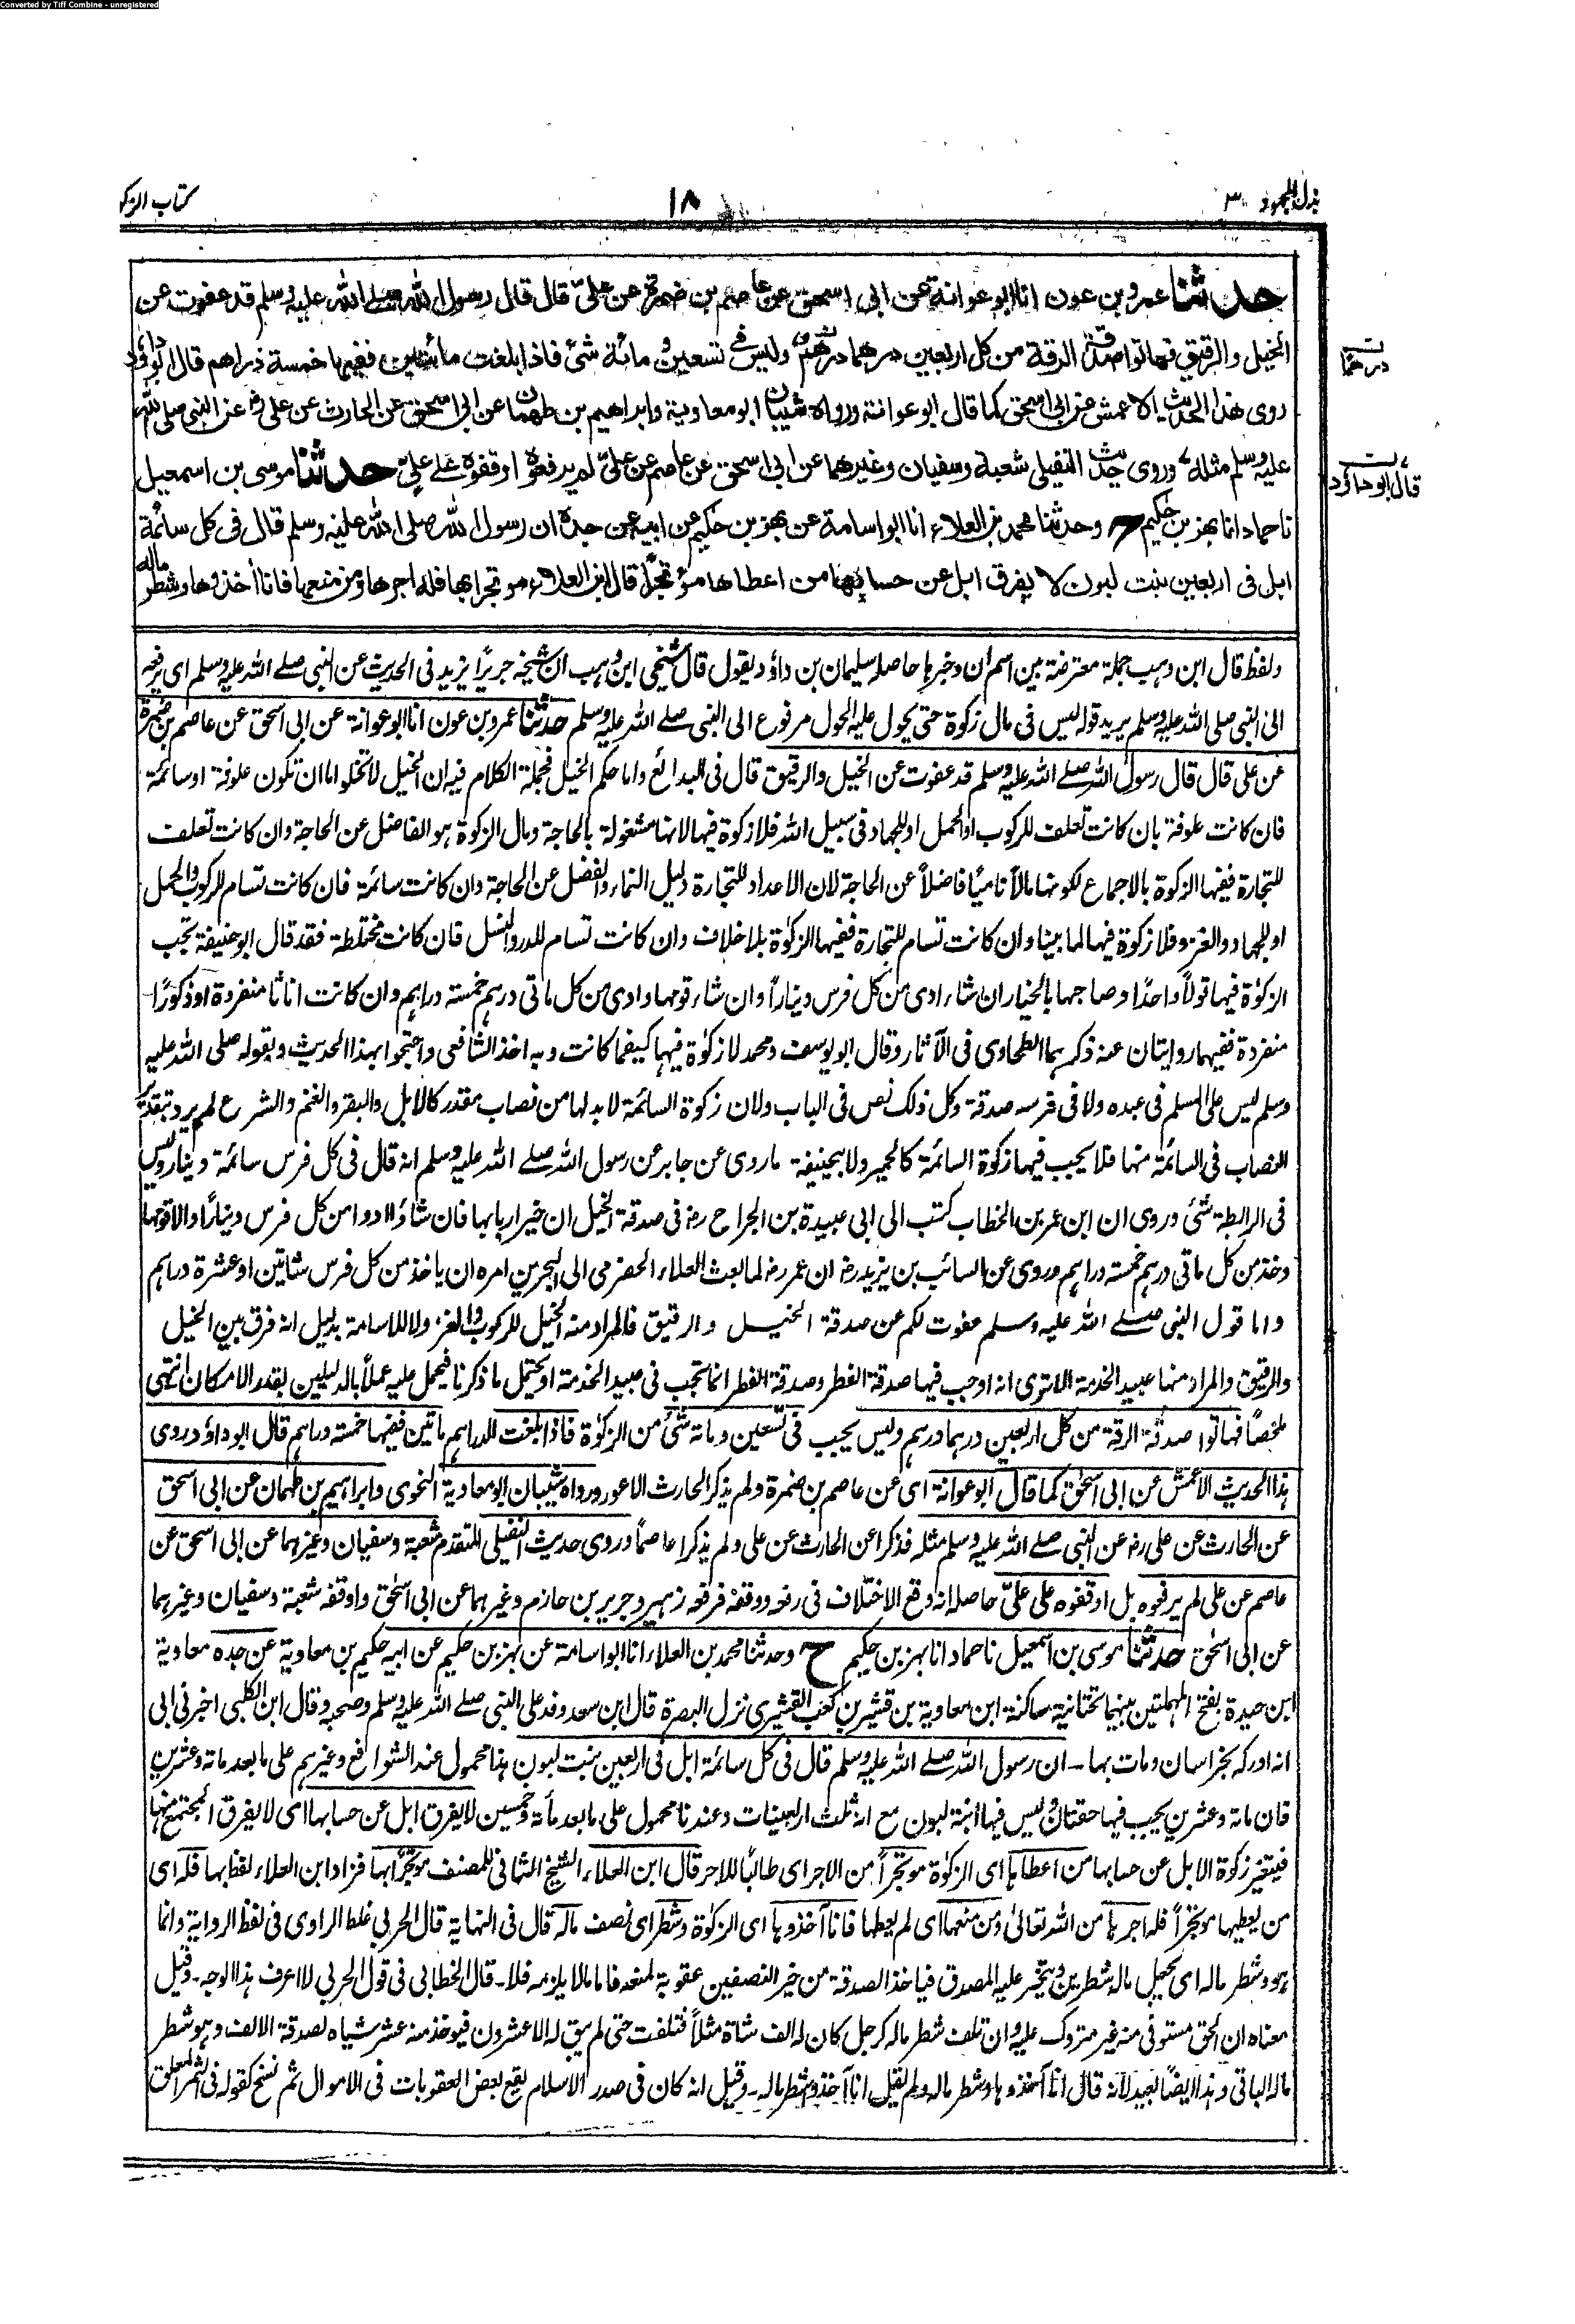 Converted by Tiff Combine - unregistered
بذل المجهود ٣
١٨
كتاب الزكو
حدثنا عمرو بن عون انا ابو عوانة عن ابى اسحق عن عاصم بن ضمرة عن على قال قال رسول الله صلے الله عليه وسلم قد عفوت عن
الخيل والرقيق فهاتوا صدقة الرقة من كل اربعين درهما درهم وليس في تسعين ومائة شئ فاذا بلغت مائتين ففيها خمسة دراهم قال ابو داؤد
درهمًا
روى هذا الحديث الاعمش عن ابى اسحق كما قال ابو عوانة ورواه شيبان ابو معاوية وابراهيم بن طهمان عن ابى اسحق عن الحارث عن على عن النبى صلى الله
عليه وسلم مثله وروى حديث النفيلى شعبة وسفيان وغيرهما عن ابى اسحق عن عاصم عن على لم يرفعوه اوقفوه على على حدثنا موسى بن اسمعيل
قال ابو داؤد
نا حماد انا بهز بن حكيم ح وحدثنا محمد بن العلاء انا ابو اسامة عن بهز بن حكيم عن ابيه عن جده ان رسول الله صلى الله عليه وسلم قال فى كل سائمة
ابل فى اربعين بنت لبون لا يفرق ابل عن حسابها من اعطاها مؤتجرًا قال ابن العلاء مؤتجرا بها فله اجرها ومن منعها فانا اخذوها وشطر ماله
ولفظ قال ابن وهب جملة معترضة بين اسم ان وخبرها حاصله سليمان بن داؤد يقول قال شيخى ابن وهب ان شيخه جريرًا يزيد فى الحديث عن النبى صلے الله عليه وسلم اى يرفعه
الى النبى صلى الله عليه وسلم يريد قوله ليس فى مال زكوة حتى يحول عليه الحول مرفوع الى النبى صلے الله عليه وسلم حدثنا عمرو بن عون انا ابو عوانة عن ابى اسحق عن عاصم بن ضمرة
عن على قال قال رسول الله صلے الله عليه وسلم قد عفوت عن الخيل والرقيق قال فى البدائع واما حكم الخيل فجملة الكلام فيه ان الخيل لا تخلو اما ان تكون علوفة او سائمة
فان كانت علوفة بان كانت تعلف للركوب او الحمل او للجهاد فى سبيل الله فلا زكوة فيها لانها مشغولة بالحاجة ومال الزكوة هو الفاضل عن الحاجة وان كانت تعلف
للتجارة ففيها الزكوة بالاجماع لكونها مالاً ناميًا فاضلاً عن الحاجة لان الاعداد للتجارة دليل النماء والفضل عن الحاجة وان كانت سائمة فان كانت تسام للركوب والحمل
او للجهاد والغزو فلا زكوة فيها لما بينا وان كانت تسام للتجارة ففيها الزكوة بلا خلاف وان كانت تسام للدر والنسل فان كانت مختلطة فقد قال ابو حنيفة تجب
الزكوة فيها قولاً واحدًا وصاحبها بالخيار ان شاء ادى من كل فرس دينارًا وان شاء قومها وادى من كل ماتى درهم خمسة دراهم وان كانت اناثا منفردة او ذكورًا
منفردة ففيها روايتان عنه ذكرهما الطحاوى فى الآثار وقال ابو يوسف ومحمد لا زكوة فيها كيفما كانت وبه اخذ الشافعى واحتجوا بهذا الحديث وبقوله صلى الله عليه
وسلم ليس على المسلم فى عبده ولا فى فرسه صدقة وكل ذلك نص فى الباب ولان زكوة السائمة لا بد لها من نصاب مقدر كالابل والبقر والغنم والشرع لم يرد بتقدير
النصاب فى السائمة منها فلا يجب فيها زكوة السائمة كالحمير ولابيحنيفة ما روى عن جابر عن رسول الله صلے الله عليه وسلم انه قال فى كل فرس سائمة دينار وليس
فى الرابطة شئ وروى ان ابن عمر بن الخطاب كتب الى ابى عبيدة بن الجراح رضه فى صدقة الخيل ان خير اربابها فان شاؤا ادوا من كل فرس دينارًا والا قومها
وخذ من كل ماتى درهم خمسة دراهم وروى عن السائب بن يزيد رضه ان عمر رضه لما بعث العلاء الحضرمى الى البحرين امره ان ياخذ من كل فرس شاتين او عشرة دراهم
واما قول النبى صلے الله عليه وسلم عفوت لكم عن صدقة الخيل والرقيق فالمراد منه الخيل للركوب والغزو لا للاسامة بدليل انه فرق بين الخيل
والرقيق والمراد منها عبيد الخدمة الا ترى انه اوجب فيها صدقة الفطر وصدقة الفطر انما تجب فى عبيد الخدمة او يحتمل ما ذكرنا فيحمل عليه عملاً بالدليلين بقدر الامكان انتهى
ملخصًا فهاتوا صدقة الرقة من كل اربعين درهما درهم وليس يجب فى تسعين ومائة شئ من الزكوة فاذا بلغت الدراهم ماتين ففيها خمسة دراهم قال ابو داؤد روى
هذا الحديث الاعمش عن ابى اسحق كما قال ابو عوانة اى عن عاصم بن ضمرة ولم يذكر الحارث الاعور ورواه شيبان ابو معاوية النحوى وابراهيم بن طهمان عن ابى اسحق
عن الحارث عن على رضه عن النبى صلے الله عليه وسلم مثله فذكرا عن الحارث عن على ولم يذكرا عاصمًا وروى حديث النفيلى المتقدم شعبة وسفيان وغيرهما عن ابى اسحق عن
عاصم عن على لم يرفعوه بل اوقفوه على علىّ حاصله انه وقع الاختلاف فى رفعه ووقفه فرفعه زهير وجرير بن حازم وغيرهما عن ابى اسحق واوقفه شعبة وسفيان وغيرهما
عن ابى اسحق حدثنا موسى بن اسمعيل نا حماد انا بهز بن حكيم ح وحدثنا محمد بن العلاء انا ابو اسامة عن بهز بن حكيم عن ابيه حكيم بن معاوية عن جده معاوية
ابن حيدة بفتح المهملتين بينهما تحتانية ساكنة ابن معاوية بن قشير بن كعب القشيرى نزل البصرة قال ابن سعد وفد على النبى صلے الله عليه وسلم وصحبه وقال ابن الكلبى اخبرنى ابى
انه ادركه بخراسان ومات بها ـ ان رسول الله صلے الله عليه وسلم قال فى كل سائمة ابل فى اربعين بنت لبون هذا محمول عند الشوافع وغيرهم على ما بعد مائة وعشرين
فان مائة وعشرين يجب فيها حقتان وليس فيها ابنة لبون مع انه ثلث اربعينات وعندنا محمول على ما بعد مأة وخمسين لا يفرق ابل عن حسابها اى لا يفرق المجتمع منها
فيتغير زكوة الابل عن حسابها من اعطاها اى الزكوة مؤتجرًا من الاجر اى طالبًا للاجر قال ابن العلاء الشيخ الثانى للمصنف مؤتجرًا بها فزاد ابن العلاء لفظ بها فله اى
من يعطيها مؤتجرًا فله اجرها من الله تعالى ومن منعها اى لم يعطها فانا آخذوها اى الزكوة وشطر اى نصف ماله قال فى النهاية قال الحربى غلط الراوى فى لفظ الرواية وانما
هو وشطر ماله اى يجعل ماله شطرين ويتخير عليه المصدق فياخذ الصدقة من خير النصفين عقوبة لمنعه فاما ما لا يلزمه فلا ـ قال الخطابى فى قول الحربى لا اعرف هذا الوجه ـ وقيل
معناه ان الحق مستوفى منه غير متروك عليه وان تلف شطر ماله كرجل كان له الف شاة مثلاً فتلفت حتى لم يبق له الا عشرون فيوخذ منه عشر شياه لصدقة الالف وهو شطر
ماله الباقى وهذا ايضًا بعيد لانه قال انا آخذوها وشطر ماله ولم يقل انا آخذو شطر ماله ـ وقيل انه كان فى صدر الاسلام يقع بعض العقوبات فى الاموال ثم نسخ كقوله فى الثمر المعلق